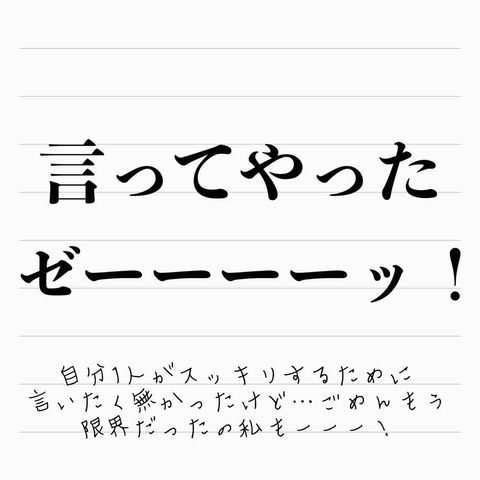 言ってやった
ゼーーーーッ！
自分1人がスッキリするために
言いたく無かったけど…ごめんもう
限界だったの私もーーー！